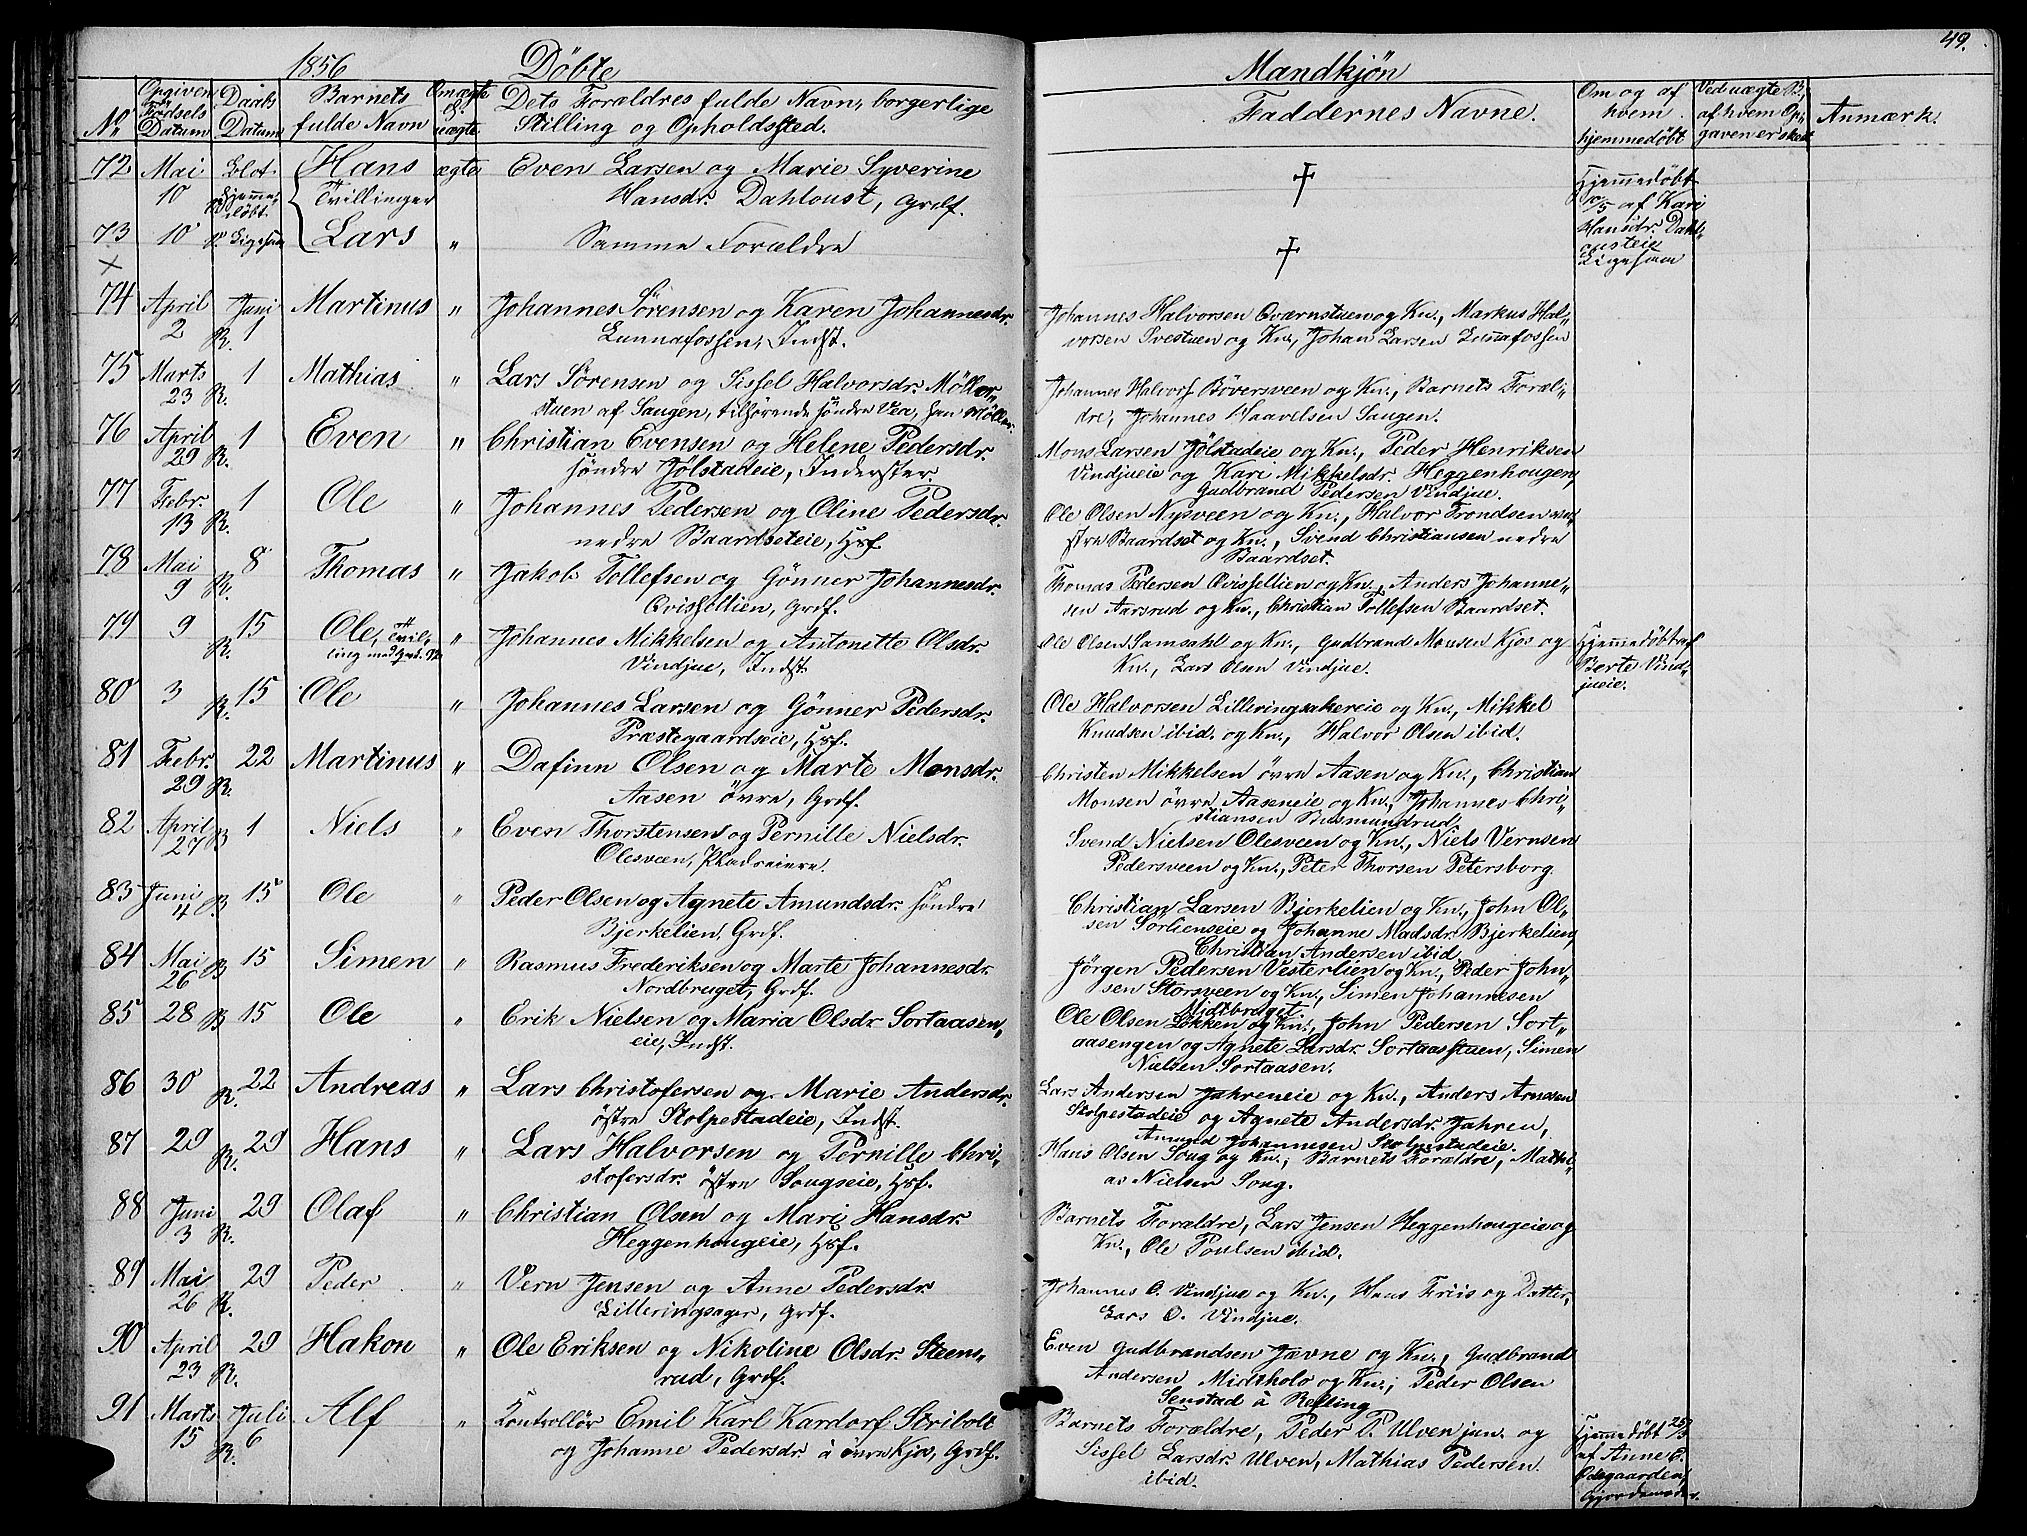 1856 Döbte
No Opgiven Födsels Datum Daabs Datum Barnets fulde Navn Om ægte el. uægte Dets Forældres fulde Navn, borgerlige Stilling og Opholdssted.
72 Mai 10 blot hjemmedöbt Hans Tvillinger ægte Even Larsen og Marie Syverine
Hansdr. Dahloust, Grdf.
73 10 Ligesaa Lars " Samme Forældre
74 April 2 R. Juni 1 Martinus " Johannes Sörensen og Karen Johannesdr.
Lunnafossen, Indst.
75 Marts 23 R. 1 Mathias " Lars Sörensen og Sissel Halvorsdr. Möller-
stuen af Saugen, tilhörende söndre Vea, han Möller.
76 April 29 R. 1 Even " Christian Evensen og Helene Pedersdr.
söndre Jölstadeie, Inderster.
77 Febr. 13 R. 1 Ole " Johannes Pedersen og Oline Pedersdr.
nedre Baardseteie, Hsf.
78 Mai 9 R. 8 Thomas " Jakob Tollefsen og Gönner Johannesdr.
Qvissellien, Grdf.
79 9 R. 15 Ole, Tvilling med " Johannes Mikkelsen og Antonette Olsdr.
Vindjue, Indst.
80 3 R. 15 Ole " Johannes Larsen og Gönner Pedersdr.
Præstegaardseie, Hsf.
81 Febr. 29 R. 22 Martinus " Dafinn Olsen og Marte Monsdr.
Aasen övre, Grdf.
82 April 27 B 1 Niels " Even Thorstensen og Pernille Nielsdr.
Olesveen, Pladseiere.
83 Juni 4 B 15 Ole " Peder Olsen og Agnete Amundsdr. söndre
Bjerkelien, Grdf.
84 Mai 26 B 15 Simen " Rasmus Frederiksen og Marte Johannesdr.
Nordbruget, Grdf.
85 28 B 15 Ole " Erik Nielsen og Maria Olsdr Sortaasen-
eie, Indst.
86 30 R. 22 Andreas " Lars Christofersen og Marie Andersdr.
östre Stolpestadeie, Indst.
87 29 R. 29 Hans " Lars Halvorsen og Pernille Chri-
stofersdr. östre Sougseie, Hsf.
88 Juni 3 R. 29 Olaf " Christian Olsen og Mari Hansdr.
Heggenhougeie, Hsf.
89 Mai 26 R. 29 Peder " Vern Jensen og Anne Pedersdr.
Lilleringsager, Grdf.
90 April 23 R. 29 Hakon " Ole Eriksen og Nikoline Olsdr. Steens-
rud, Grdf.
91 Marts 15 R. Juli 6 Alf " Kontrollör Emil Karl Kardorf Stribolt
og Johanne Pedersdr. à övre Kjos, Grdf.
Mandkjön 49.
Faddernes Navne. Om og af hvem hjemmedöbt Ved uægte B. af hvem Opgaven er skeet Anmærk.
† Hjemmedöbt
10/5 af Kari
Hansdr. Dahl-
ousteie
† Ligesaa
Johannes Halvorsen Qværnstuen og Kn., Markus Hal-
vorsen Svestuen og Kn., Johan Larsen Lunafossen
Johannes Halvors. Böversveen og Kn., Barnets Foræl-
dre, Johannes Haavelsen Saugen.
Mons Larsen Jölstadeie og Kn., Peder Henriksen
Vindjueie og Kari Mikkelsdr. Heggenhougen,
Gudbrand Pedersen Vindjue.
Ole Olsen Nysveen og Kn., Halvor Trondsen
Baardset og Kn., Svend Christiansen nedre
Baardset.
Thomas Pedersen Qvissellien og Kn., Anders Johanne-
sen Aarsrud og Kn., Christian Tollefsen Baardset.
Ole Olsen Samsahl og Kn., Gudbrand Monsen Kjos og Hjemmedöbt af
Kn., Lars Olsen Vindjue. Berte Vind-
jueie.
Ole Halvorsen Lilleringsakereie og Kn., Mikkel
Knudsen ibid. og Kn., Halvor Olsen ibid.
Christen Mikkelsen övre Aasen og Kn., Christian
Monsen övre Aaseneie og Kn., Johannes Chri-
stiansen Busmundrud.
Svend Nielsen Olesveen og Kn., Niels Vernsen
Pedersveen og Kn., Peter Thorsen Petersborg.
Christian Larsen Bjerkelien og Kn., John Ol-
sen Sörlienseie og Johanne Madsdr. Bjerkelien,
Christian Andersen ibid.
Jörgen Pedersen Vesterlien og Kn., Peder John-
sen Storsveen og Kn., Simen Johannesen
Midtbruget.
Ole Olsen Lökken og Kn., John Pedersen Sort-
aasengen og Agnete Larsdr. Sortaasstuen, Simen
Nielsen Sortaasen.
Lars Andersen Jahreneie og Kn., Anders Arnesen
Stolpestadeie og Agnete Andersdr. Jahren,
Amund Johannesen Stolpestadeie.
Hans Olsen Soug og Kn., Barnets Forældre, Mathi-
as Nielsen Soug.
Barnets Forældre, Lars Jensen Heggenhougeie og
Kn., Ole Poulsen ibid.
Johannes O. Vindjue og Kn., Hans Friis og Datter,
Lars O. Vindjue.
Even Gudbrandsen Jævne og Kn., Gudbrand
Andersen Midtholo og Kn., Peder Olsen
Senstad à Refling
Barnets Forældre, Peder P. Ulven jun. og Hjemmedöbt 25/3
Sissel Larsdr. Ulven, Mathias Pedersen af Anne E.
ibid. Ödegaarden,
Gjordemoder.